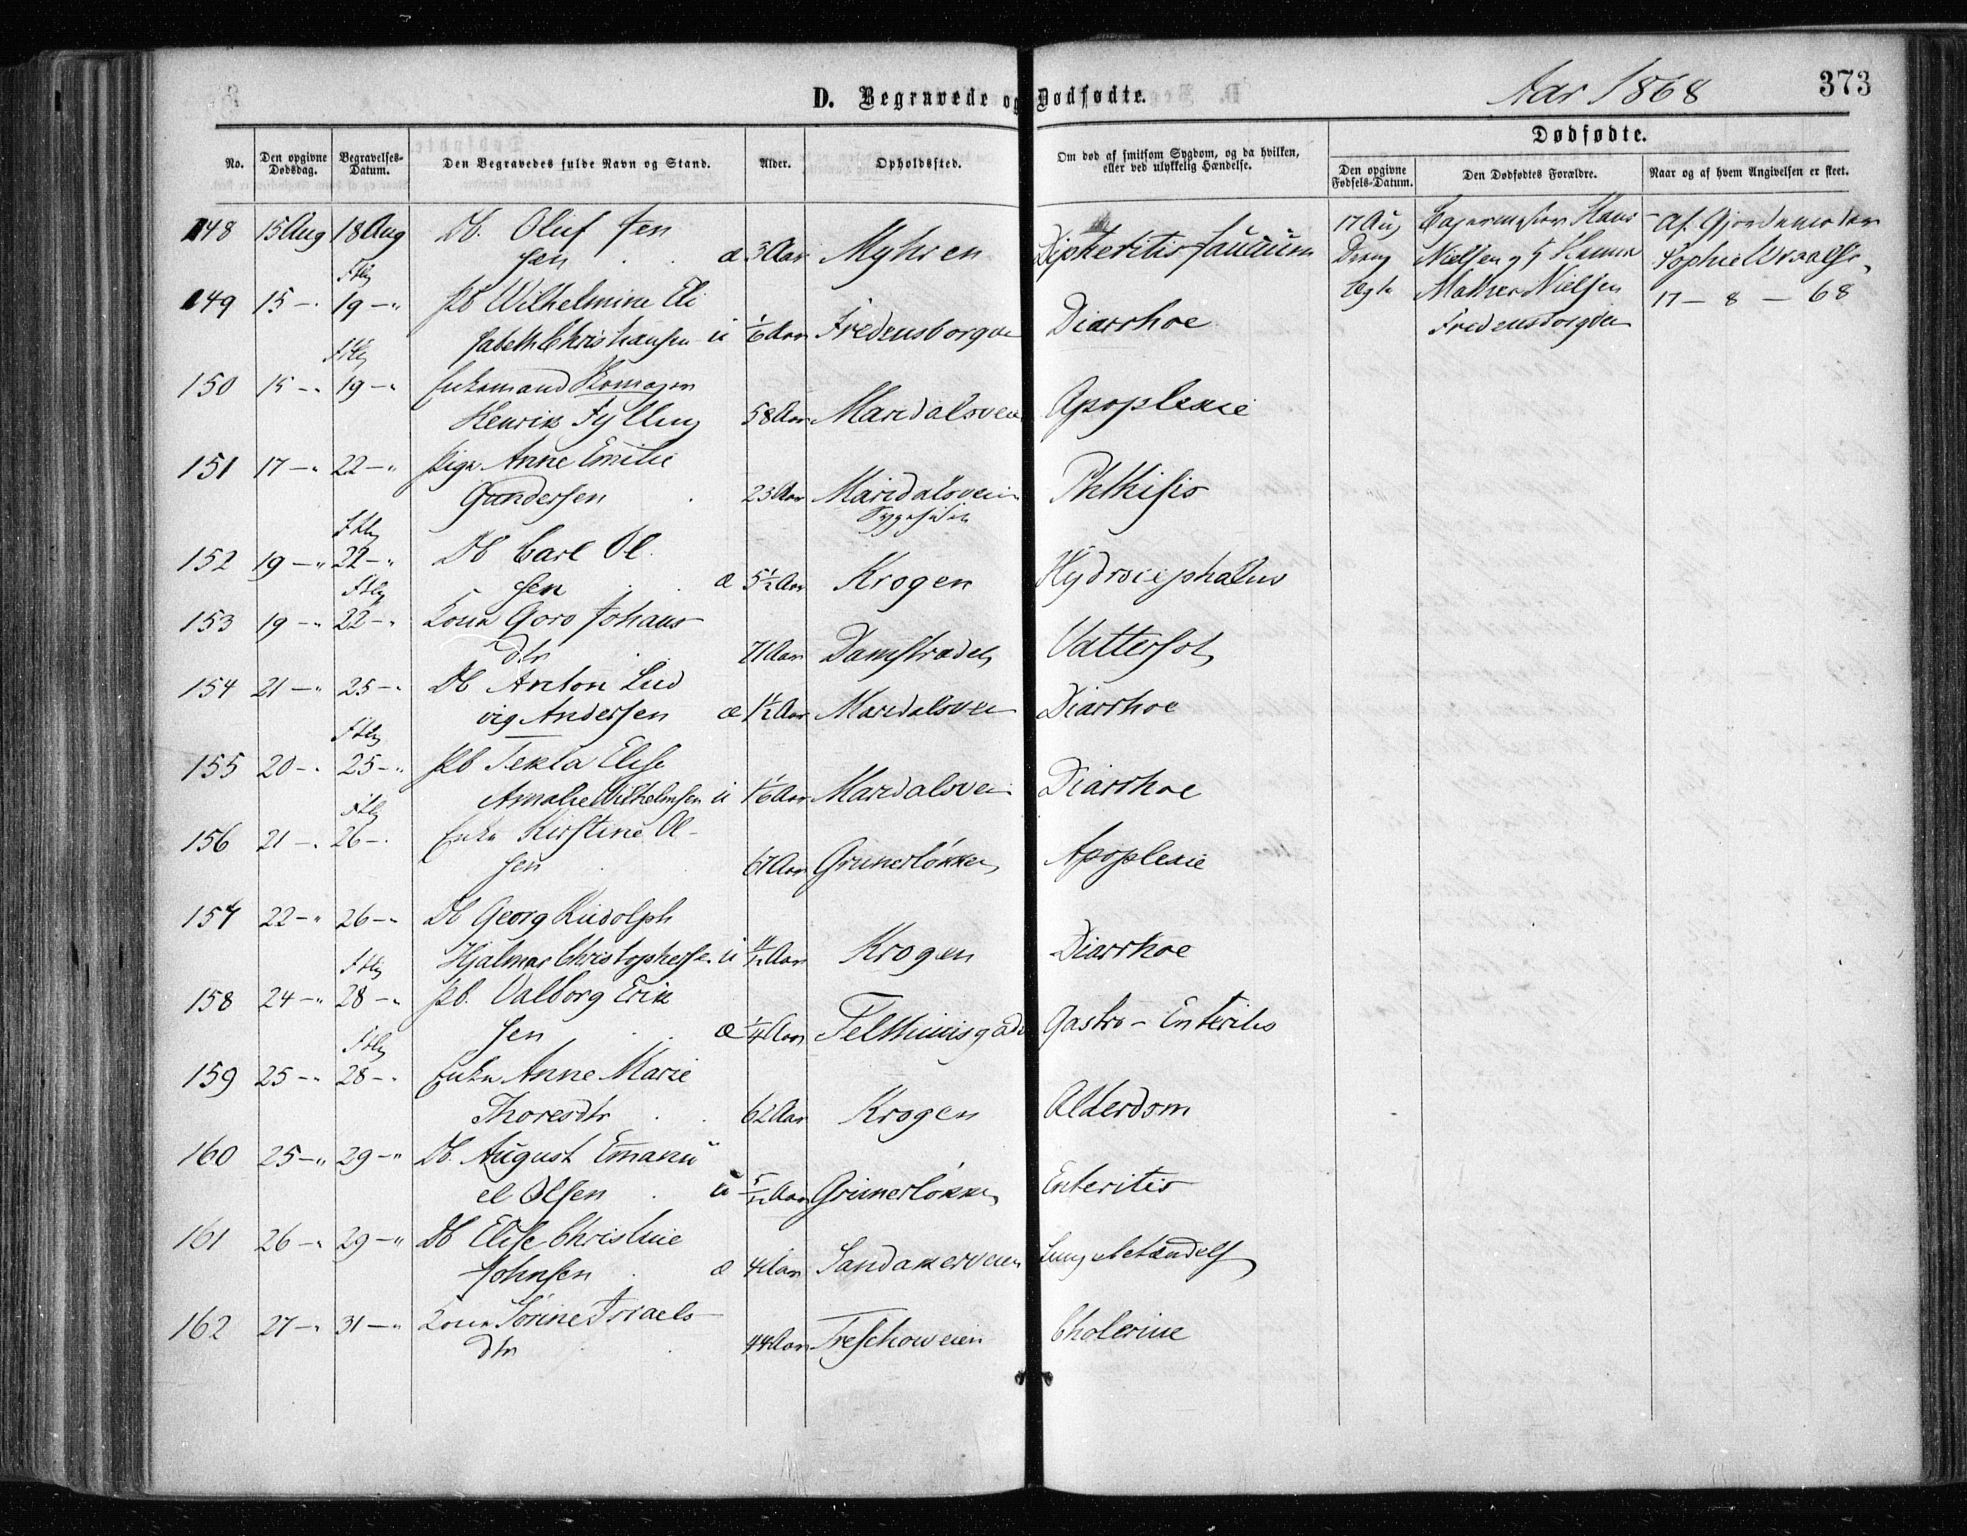 D. Begravede og Dødfødte.
Aar 1868
373
No.
Den opgivne Dødsdag.
Begravelses-Datum.
Den Begravedes fulde Navn og Stand.
Alder.
Opholdssted.
Om død af smitsom Sygdom, og da hvilken, eller ved ulykkelig Hændelse.
Dødfødte.
Den opgivne Fødsels-Datum.
Den Dødfødtes Forældre.
Naar og af hvem Angivelsen er skeet.
148 15 Aug 18 Aug Db. Oluf Jen
sen æ 3 Aar Myhren Dipheritis faucium
17 Aug
Dreng
ægte
Hans
Nielsen og H
Nielsen
Fredensborgvei
Af. Gjordemoder
Sophie
17 - 8 - 68
149 15 -" 19 -" Pb Wilhelmine Eli
sabeth Christiansen u 1/6 Aar Fredensborgvei Diarrhoe
150 15 -" 19 -" Enkemand
Henrik Fylling 58 Aar Maridalsveien Apoplexie
151 17 -" 22 -" Pige Anne Emilie
Gundersen 23 Aar Maridalsveien Phthisis
152 19 -" 22 -" Db Carl Ol
sen æ 5 1/2 Aar Krogen Hydrocephalus
153 19 -" 22 -" Kone Goro Johans
dtr 71 Aar Damstrædet Vattersot
154 21 -" 25 -" Db Anton Lud
vig Andersen æ 1 1/2 Aar Maridalsvei Diarrhoe
155 20 -" 25 -" Pb Tekla Elise
Amalie Wilhelmsen u 1 1/6 Aar Maridalsvei Diarrhoe
156 21 -" 26 -" Enke Kirstine Ol-
sen 67 Aar Grunerløkken Apoplexie
157 22 -" 26 -" Db Georg Rudolph
Hjalmar Christophersen u 11/12 Aar Krogen Diarrhoe
158 24 -" 28 -" Pb. Valborg Erik
sen æ 1/4 Aar Gastro-Enteritis
159 25 -" 28 -" Enke Anne Marie
Thoresdtr 62 Aar Krogen Alderdom
160 25 -" 29 -" Db. August Emanu
el Olsen u 5/12 Aar Grunerløkken Enteritis
161 26 -" 29 -" Db Elise Christine
Johnsen æ 4 Aar Sandakerveien
162 27 -" 31 -" Kone Sørine Israels
dtr 44 Aar Treschowveien Cholerine